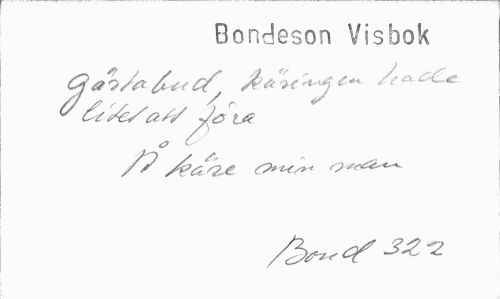 Bondeson Visbok
Gästabud, käringen hade
litet att föra
Å käre min man
Bond 322